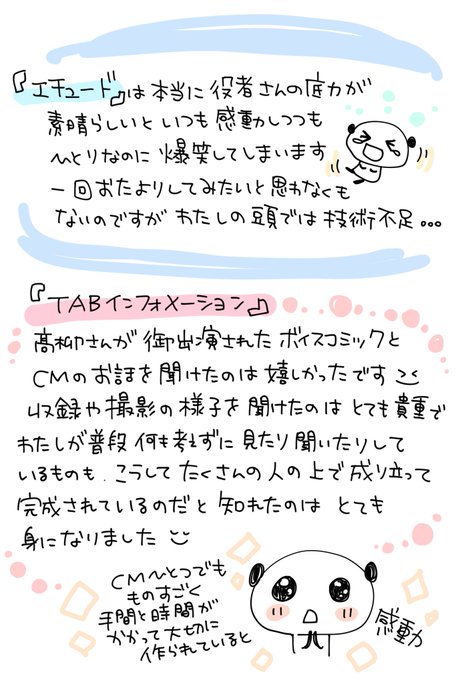 『エチュード』は本当に役者さんの底力が
素晴らしいといつも感動しつつも
ひとりなのに爆笑してしまいます
一回おたよりしてみたいと思わなくも
ないのですがわたしの頭では技術不足...
『TABインフォメーション』
高柳さんが御出演されたボイスコミックと
CMのお話を聞けたのは嬉しかったです
収録や撮影の様子を聞けたのはとても貴重で
わたしが普段何も考えずに見たり聞いたりして
いるものも、こうしてたくさんの人の上で成り立って
完成されているのだと知れたのはとても
身になりました
CMひとつでも
ものすごく
手間と時間が
かかって大切に
作られていると
感動